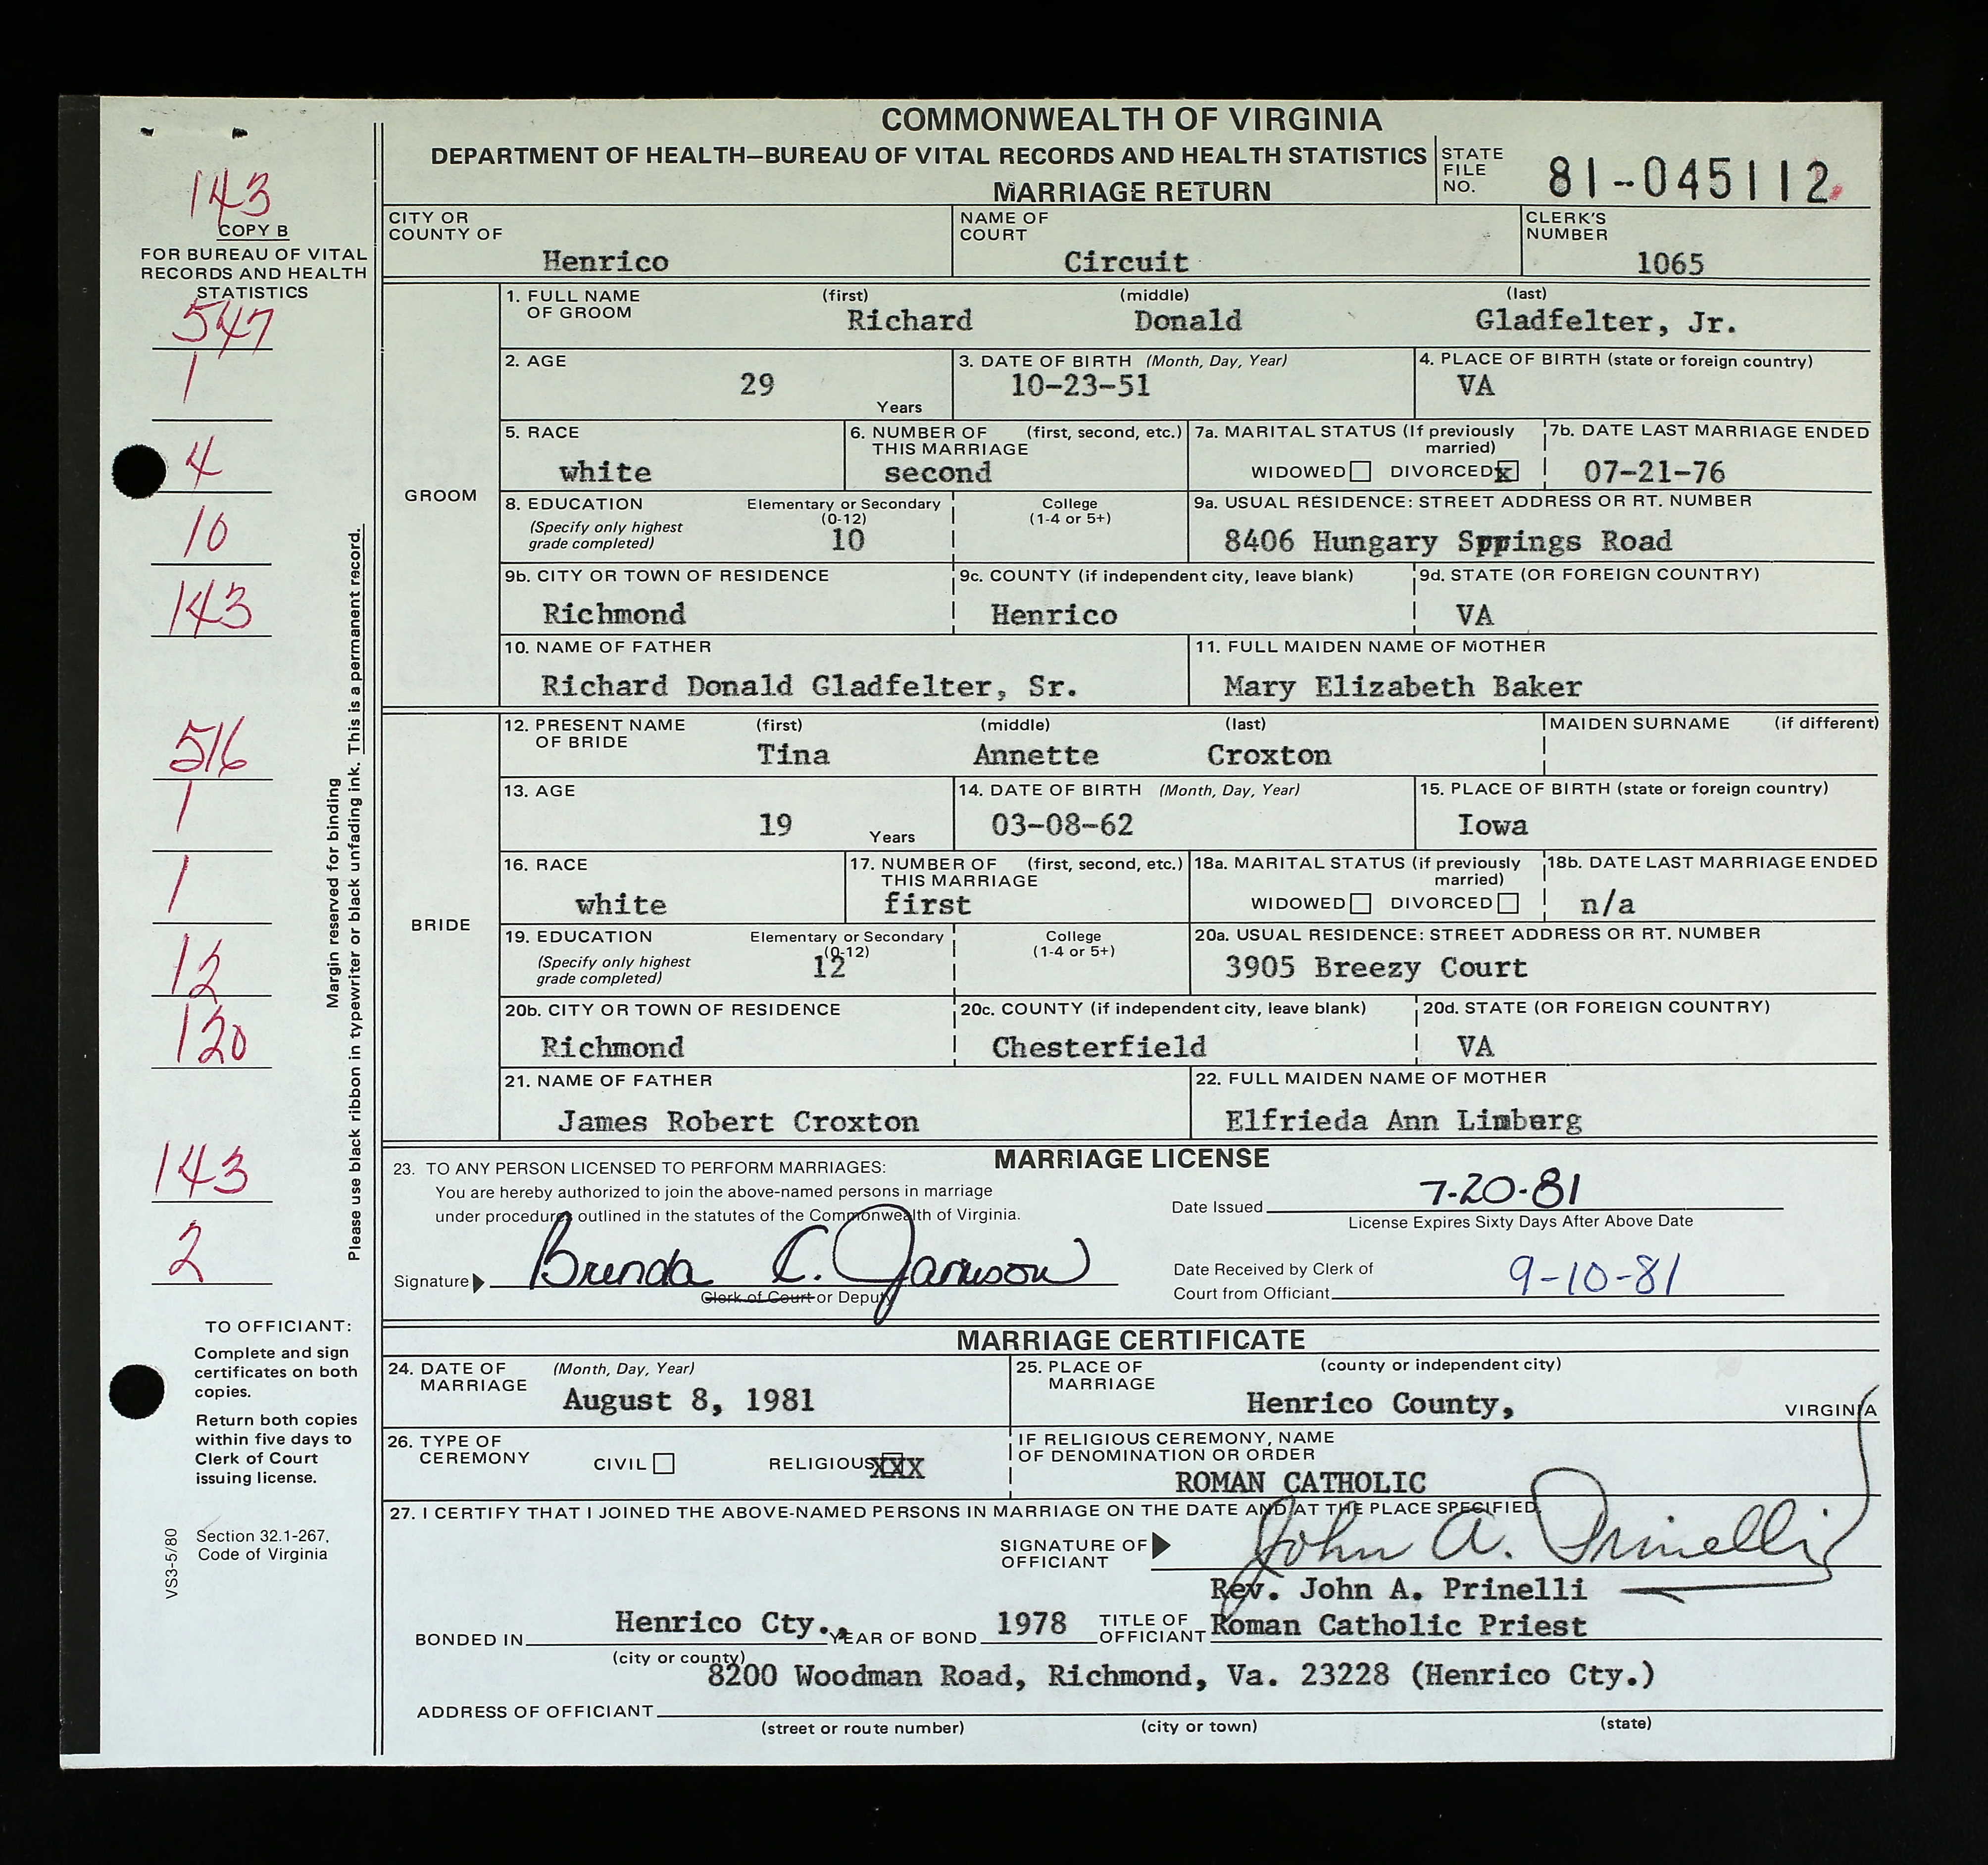 COMMONWEALTH OF VIRGINIA
DEPARTMENT OF HEALTH—BUREAU OF VITAL RECORDS AND HEALTH STATISTICS
MARRIAGE RETURN
STATE FILE NO. 81-045112
143
COPY B
FOR BUREAU OF VITAL
RECORDS AND HEALTH
STATISTICS
547
1
4
10
143
516
1
1
12
120
143
2
Margin reserved for binding
Please use black ribbon in typewriter or black unfading ink. This is a permanent record.
TO OFFICIANT:
Complete and sign
certificates on both
copies.
Return both copies
within five days to
Clerk of Court
issuing license.
Section 32.1-267,
Code of Virginia
VS3-5/80
CITY OR COUNTY OF Henrico
NAME OF COURT Circuit
CLERK'S NUMBER 1065
GROOM
1. FULL NAME OF GROOM (first) Richard (middle) Donald (last) Gladfelter, Jr.
2. AGE 29 Years
3. DATE OF BIRTH (Month, Day, Year) 10-23-51
4. PLACE OF BIRTH (state or foreign country) VA
5. RACE white
6. NUMBER OF THIS MARRIAGE (first, second, etc.) second
7a. MARITAL STATUS (If previously married) WIDOWED DIVORCED x
7b. DATE LAST MARRIAGE ENDED 07-21-76
8. EDUCATION (Specify only highest grade completed) Elementary or Secondary (0-12) 10 College (1-4 or 5+)
9a. USUAL RESIDENCE: STREET ADDRESS OR RT. NUMBER 8406 Hungary Springs Road
9b. CITY OR TOWN OF RESIDENCE Richmond
9c. COUNTY (if independent city, leave blank) Henrico
9d. STATE (OR FOREIGN COUNTRY) VA
10. NAME OF FATHER Richard Donald Gladfelter, Sr.
11. FULL MAIDEN NAME OF MOTHER Mary Elizabeth Baker
BRIDE
12. PRESENT NAME OF BRIDE (first) Tina (middle) Annette (last) Croxton
MAIDEN SURNAME (if different)
13. AGE 19 Years
14. DATE OF BIRTH (Month, Day, Year) 03-08-62
15. PLACE OF BIRTH (state or foreign country) Iowa
16. RACE white
17. NUMBER OF THIS MARRIAGE (first, second, etc.) first
18a. MARITAL STATUS (if previously married) WIDOWED DIVORCED
18b. DATE LAST MARRIAGE ENDED n/a
19. EDUCATION (Specify only highest grade completed) Elementary or Secondary (0-12) 12 College (1-4 or 5+)
20a. USUAL RESIDENCE: STREET ADDRESS OR RT. NUMBER 3905 Breezy Court
20b. CITY OR TOWN OF RESIDENCE Richmond
20c. COUNTY (if independent city, leave blank) Chesterfield
20d. STATE (OR FOREIGN COUNTRY) VA
21. NAME OF FATHER James Robert Croxton
22. FULL MAIDEN NAME OF MOTHER Elfrieda Ann Limberg
MARRIAGE LICENSE
23. TO ANY PERSON LICENSED TO PERFORM MARRIAGES:
You are hereby authorized to join the above-named persons in marriage
under procedures outlined in the statutes of the Commonwealth of Virginia.
Date Issued 7-20-81
License Expires Sixty Days After Above Date
Signature Brenda C. Jamison
Clerk of Court or Deputy
Date Received by Clerk of
Court from Officiant 9-10-81
MARRIAGE CERTIFICATE
24. DATE OF MARRIAGE (Month, Day, Year) August 8, 1981
25. PLACE OF MARRIAGE (county or independent city) Henrico County, VIRGINIA
26. TYPE OF CEREMONY CIVIL RELIGIOUS XXX
IF RELIGIOUS CEREMONY, NAME OF DENOMINATION OR ORDER ROMAN CATHOLIC
27. I CERTIFY THAT I JOINED THE ABOVE-NAMED PERSONS IN MARRIAGE ON THE DATE AND AT THE PLACE SPECIFIED.
SIGNATURE OF OFFICIANT John A. Prinelli
Rev. John A. Prinelli
BONDED IN Henrico Cty., (city or county) YEAR OF BOND 1978 TITLE OF OFFICIANT Roman Catholic Priest
8200 Woodman Road, Richmond, Va. 23228 (Henrico Cty.)
ADDRESS OF OFFICIANT
(street or route number) (city or town) (state)